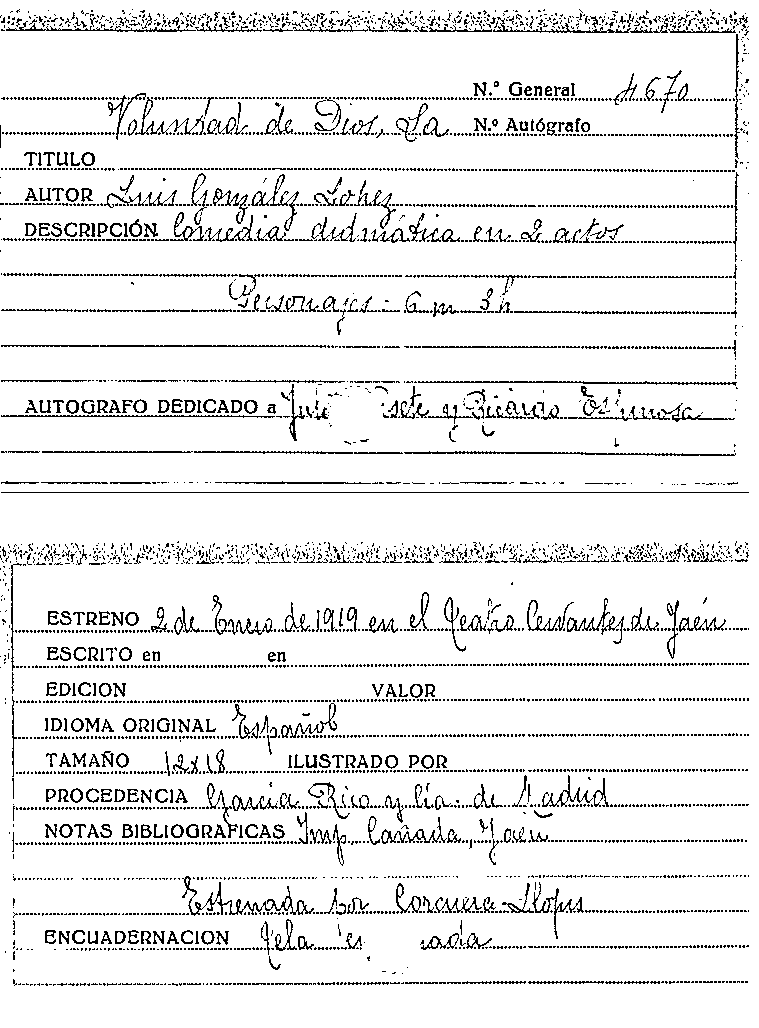 N.º General 4670
Voluntad de Dios, La N.º Autógrafo
TITULO
AUTOR Luis González López
DESCRIPCIÓN Comedia dramática en 2 actos
Personajes - 6 m 3 h
AUTOGRAFO DEDICADO a y Ricardo Espinosa
ESTRENO 2 de Enero de 1919 en el Teatro Cervantes de Jaén
ESCRITO en en
EDICION VALOR
IDIOMA ORIGINAL Español
TAMAÑO 12x18 ILUSTRADO POR
PROCEDENCIA García Rico y Cía. de Madrid
NOTAS BIBLIOGRAFICAS Imp. Cañada, Jaén
Estrenada por Corcuera-Llopis
ENCUADERNACION Tela